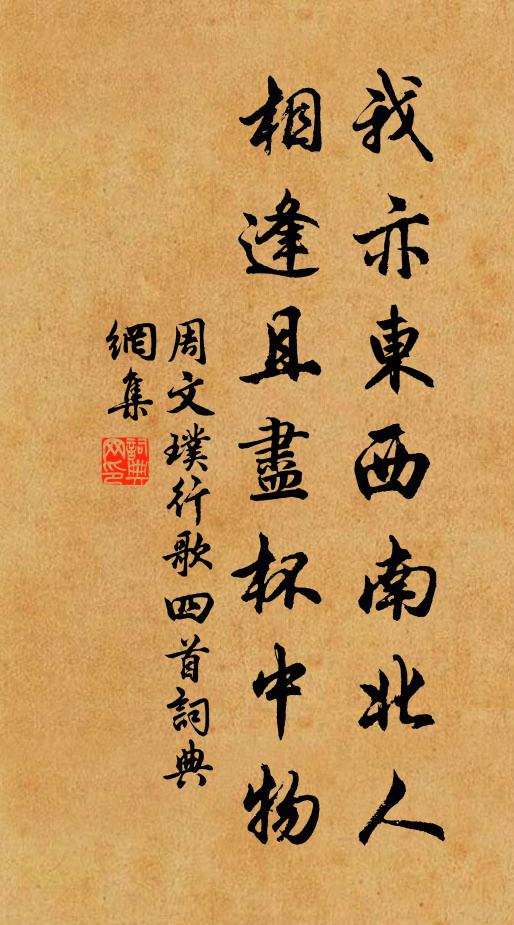 我亦東西南北人
相逢且盡杯中物
周文璞行歌四首詞典
網集
詞典網印